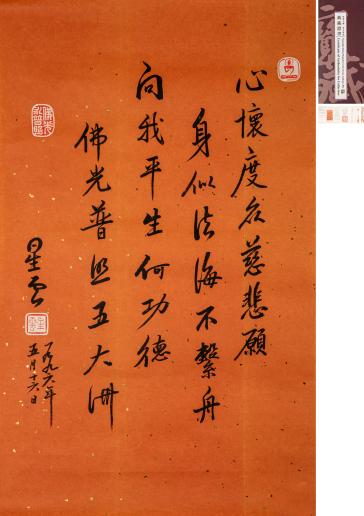 心懷度众慈悲願
身似法海不繫舟
向我平生何功德
佛光普照五大洲
星雲
一九九六年
五月十六日